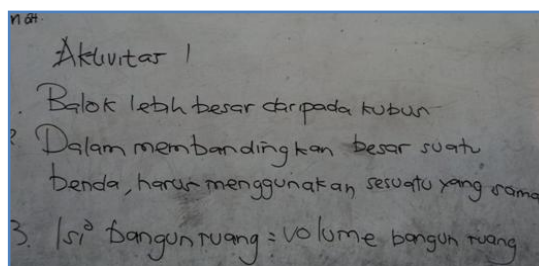 Aktivitas 1
. Balok lebih besar daripada kubus
2 Dalam membandingkan besar suatu
benda, harus menggunakan sesuatu yang sama
3. Isi bangun ruang = volume bangun ruang